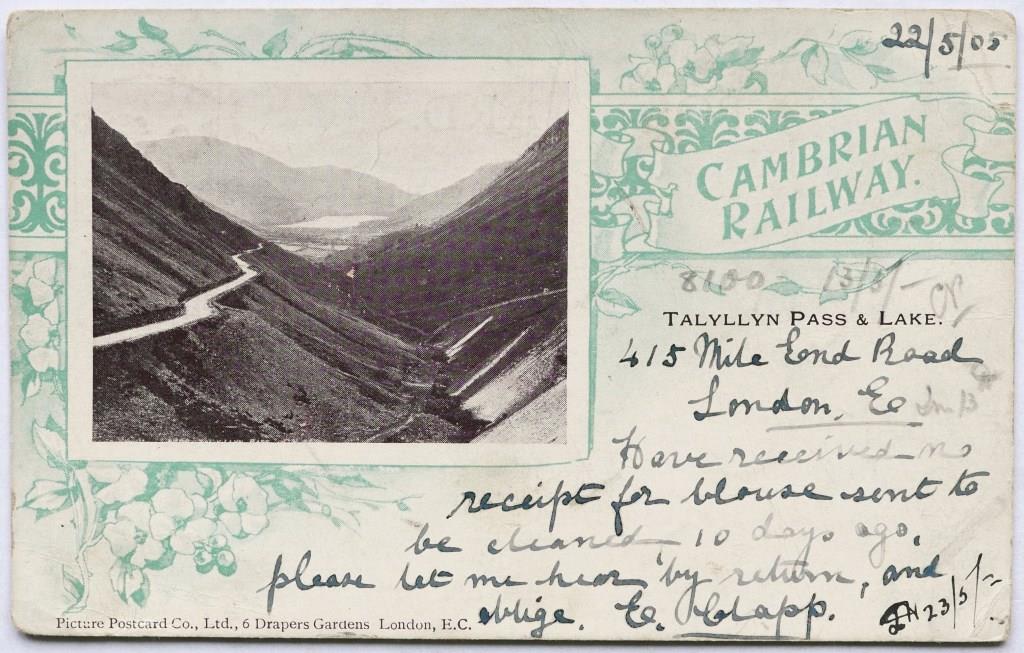 22/5/05
CAMBRIAN
RAILWAY.
8100 13/5/-
TALYLLYN PASS & LAKE.
415 Mile End Road
London, E
Have received no
receipt for blouse sent to
be cleaned 10 days ago,
please let me hear by return, and
oblige. E. Clapp.
23/5/-
Picture Postcard Co., Ltd., 6 Drapers Gardens London, E.C.